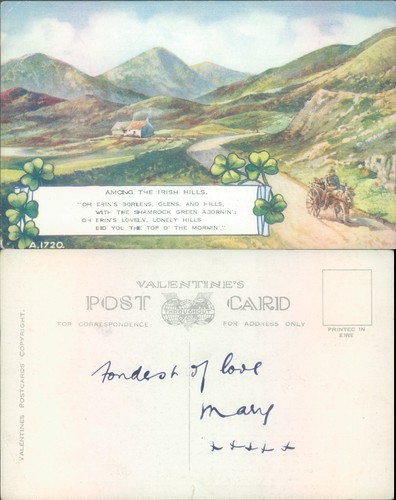 AMONG THE IRISH HILLS.
"OH ERIN'S BOREENS, GLENS, AND HILLS,
WITH THE SHAMROCK GREEN ADORNIN';
OH ERIN'S LOVELY, LONELY HILLS
BID YOU THE TOP O' THE MORNIN'."
A.1720.
VALENTINE'S
POST CARD
FOR CORRESPONDENCE
FOR ADDRESS ONLY
PRINTED IN
EIRE
VALENTINES POSTCARDS COPYRIGHT.
fondest of love
Mary
+ + + + +